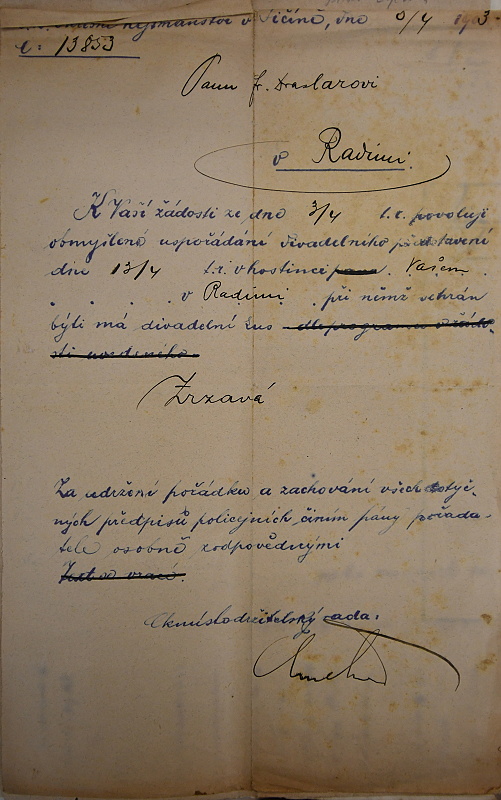 hejtmanství v Jičíně, dne 5/4 1903.
č: 13853
Panu Fr. Draslarovi
v Radimi.
K Vaší žádosti ze dne 3/4 t.r. povoluji
obmýšlené uspořádání divadelního představení
dne 13/4 t.r. v hostinci pana. Vašem.
. . . . v Radimi. při němž sehrán
býti má divadelní kus dle programu v žádo-
sti uvedeného.
Zrzavá
Za udržení pořádku a zachování všech dotyč-
ných předpisů policejních činím pány pořada-
tele osobně zodpovědnými
C.k. místodržitelský rada: